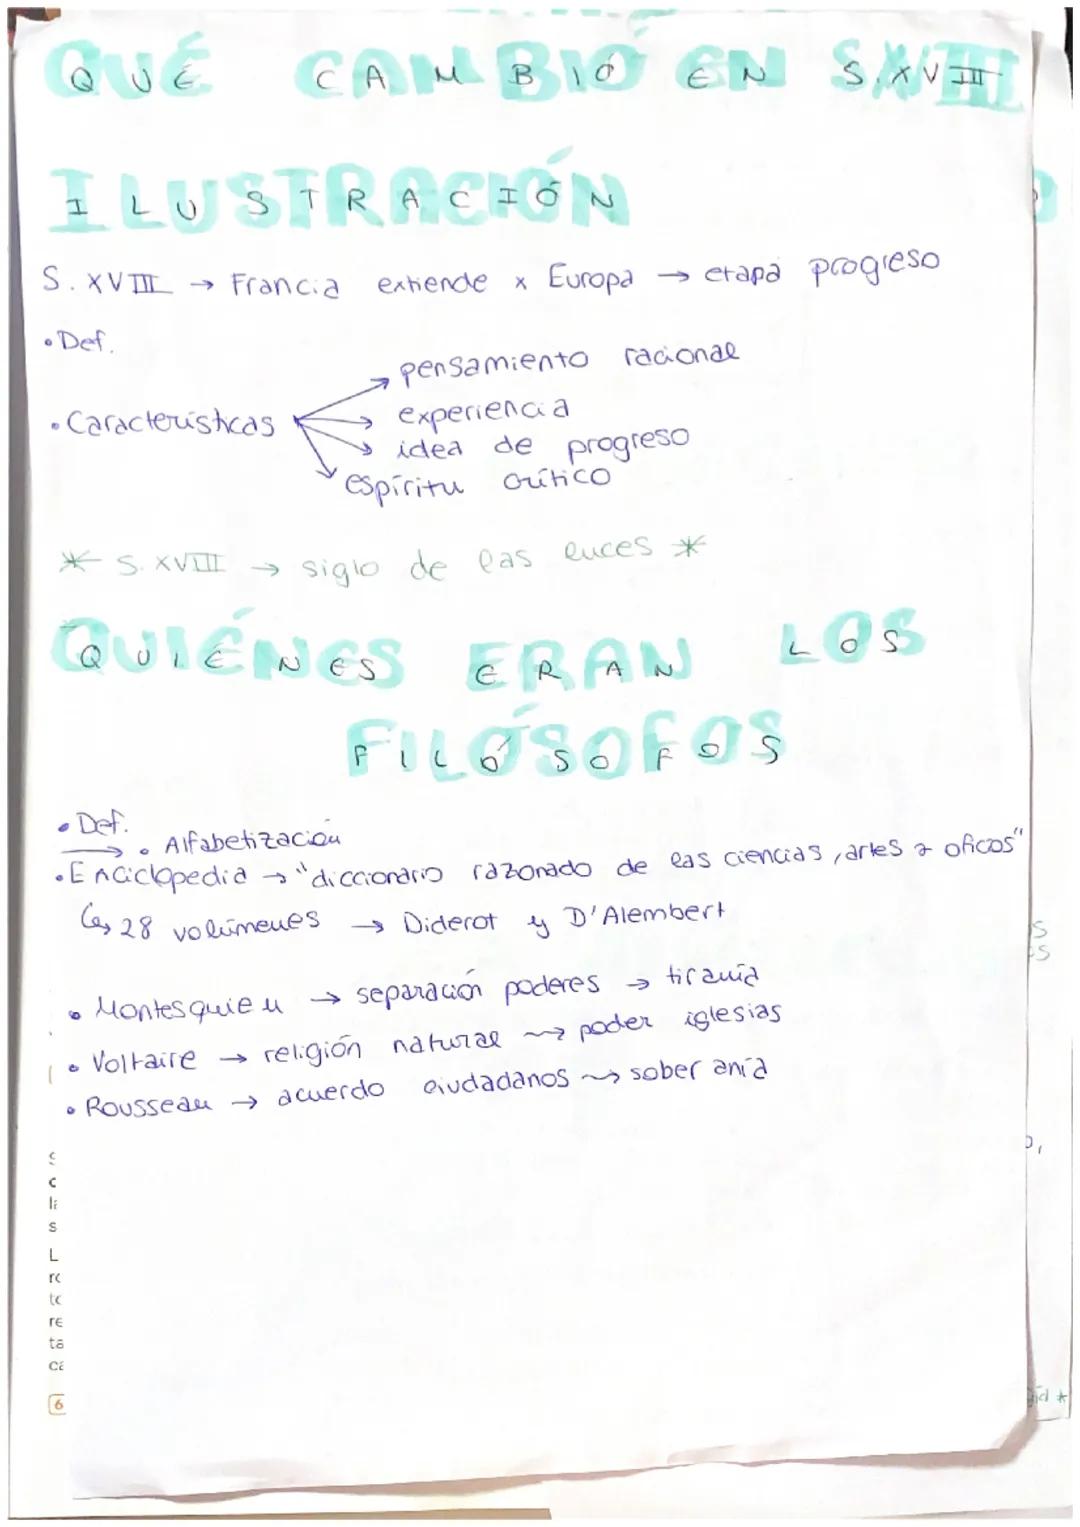 QUÉ CAMBIÓ EN S.XVIII
ILUSTRACIÓN
S. XVIII → Francia extiende x Europa → etapa progreso
• Def.
• Características → pensamiento racional
→ experiencia
→ idea de progreso
→ espíritu crítico
* S. XVIII → siglo de las luces *
QUIÉNES ERAN LOS
FILÓSOFOS
• Def.
→ • Alfabetización
• Enciclopedia → "diccionario razonado de las ciencias, artes y oficos"
↳ 28 volúmenes → Diderot y D'Alembert
• Montesquieu → separación poderes → tiranía
• Voltaire → religión natural → poder iglesias
• Rousseau → acuerdo ciudadanos → soberanía
6